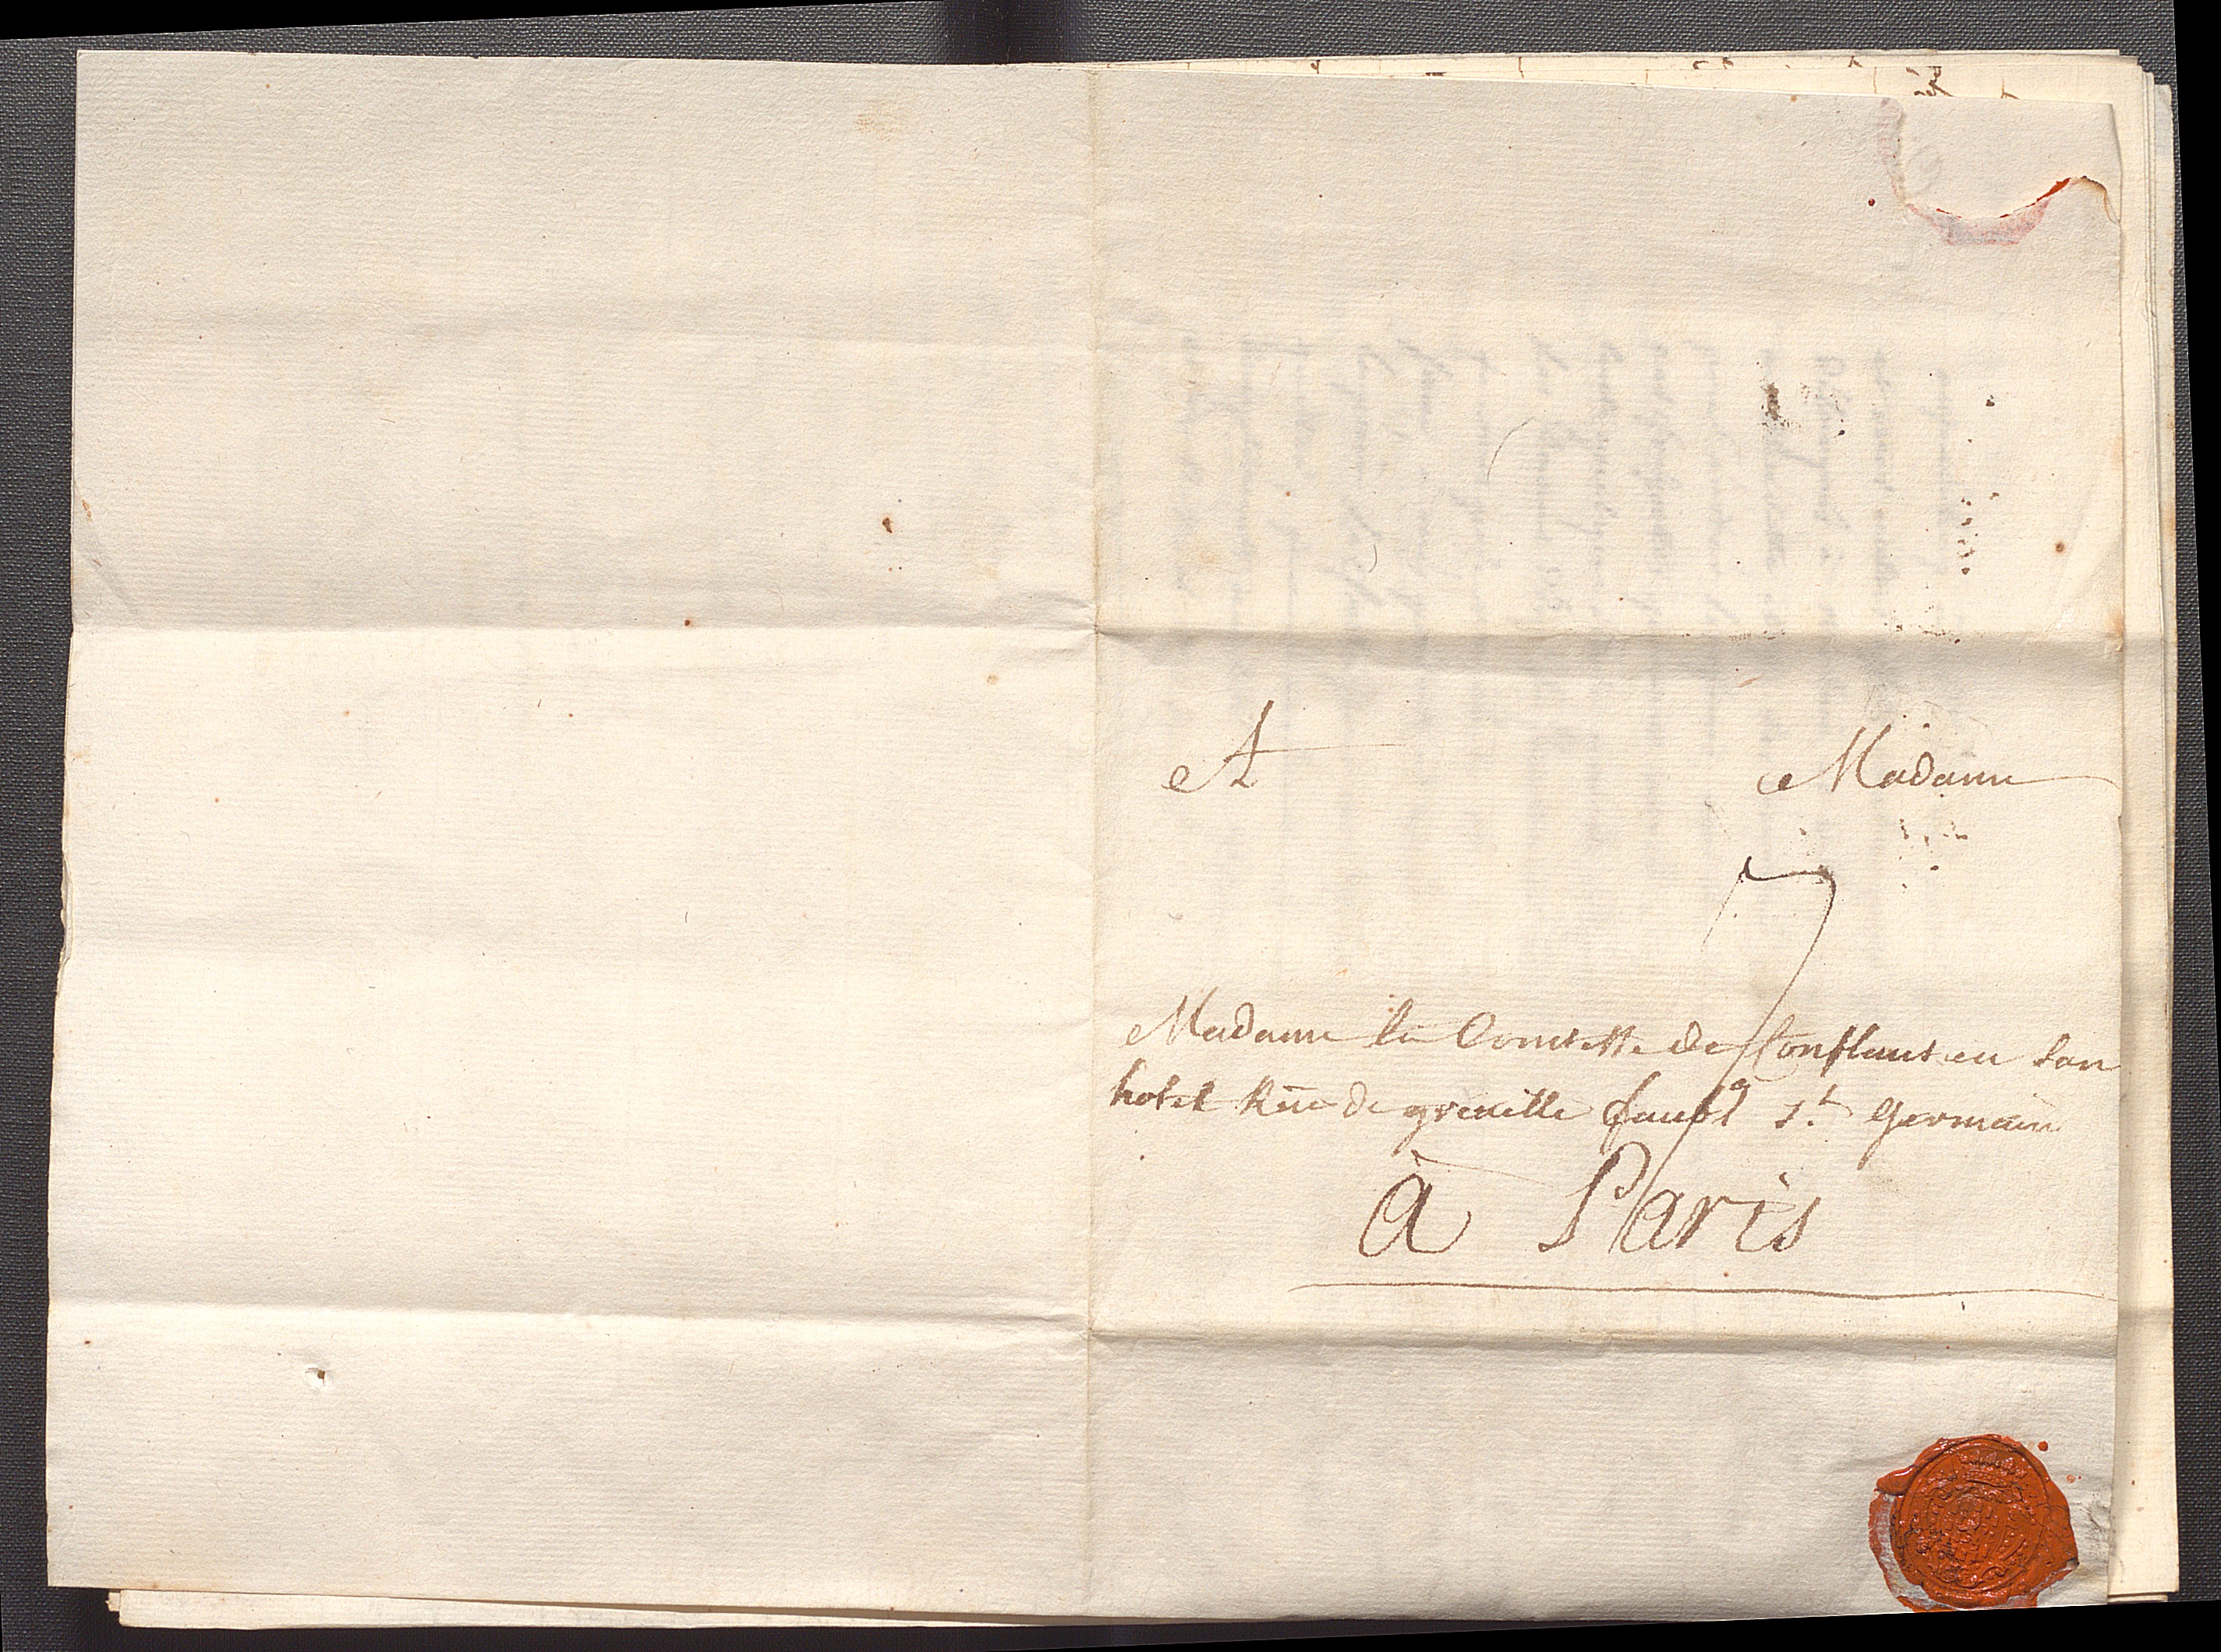 A Madame
7
Madame la Comtesse de Conflans en son
hotel Rüe de grenelle faubg St. Germain
à Paris